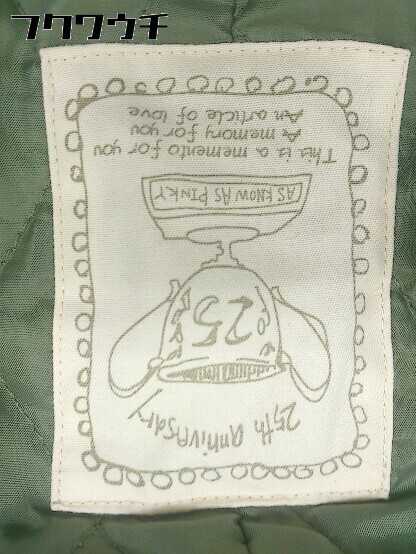 フクワウチ
25th anniversary
25
AS KNOW AS PINKY
This is a memento for you
A memory for you
An article of love